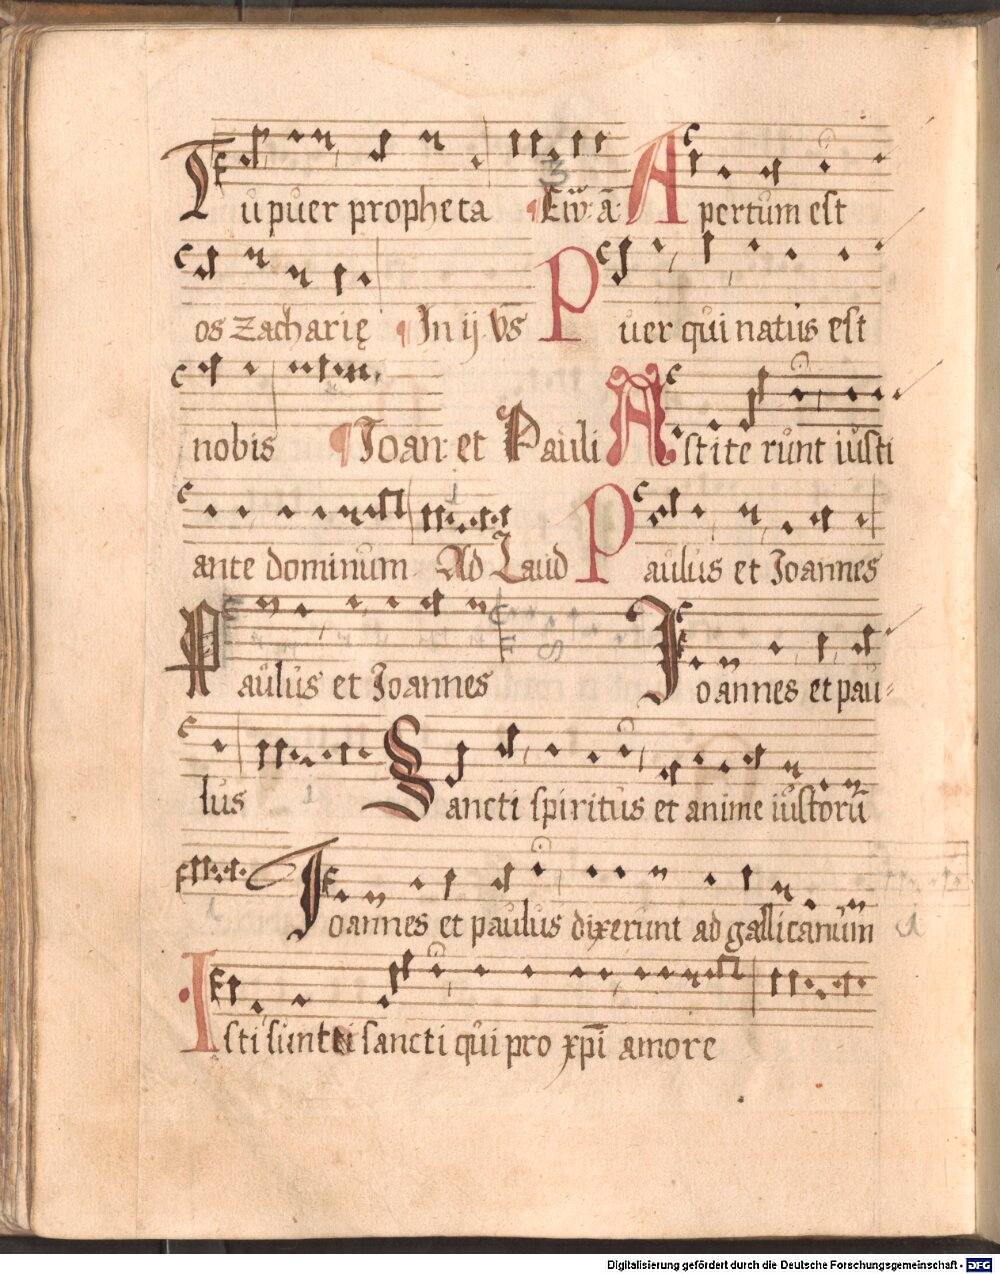 Tu puer propheta ¶ Ew. ā. Apertum est
os Zacharię ¶ In ij. vs̄ Puer qui natus est
nobis ¶ Ioan: et Pauli Astiterunt iusti
ante dominum Ad Laud Paulus et Joannes
Paulus et Joannes Joannes et pau=
lus Sancti spiritus et anime iustorū
Joannes et paulus dixerunt ad gallicanum
Isti sunt sancti qui pro xp̄i amore
Digitalisierung gefördert durch die Deutsche Forschungsgemeinschaft - DFG